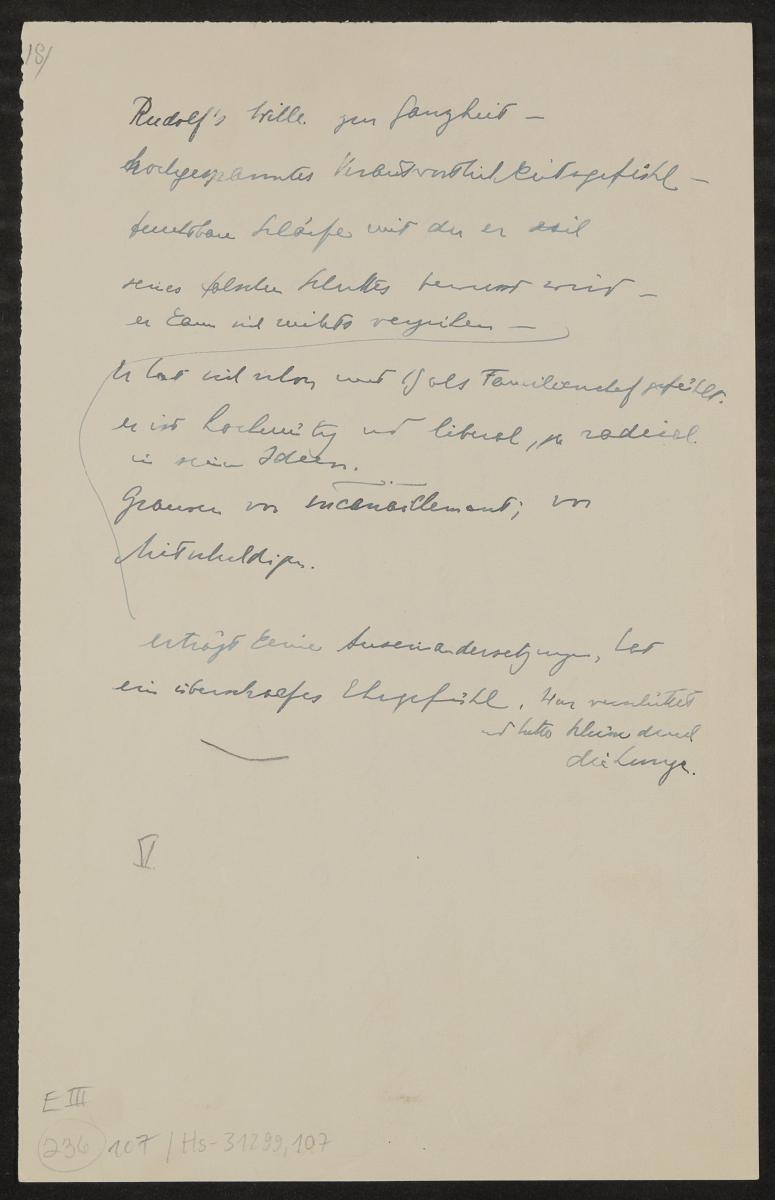 18/
Rudolf's Wille zur Ganzheit —
hochgespanntes Verantwortlichkeitsgefühl —
furchtbare Schärfe mit der er sich
seines falschen Schrittes bewusst wird —
er kann sich nichts verzeihen —
Er hat sich schon mit 19 als Familienchef gefühlt.
er ist hochmütig und liberal, ja radical
in seinen Ideen.
Grausen vor encanaillement; vor
Mitschuldigen.
erträgt keine Auseinandersetzungen, hat
ein überscharfes Ehrgefühl. War verschüttet
und hatte Schüsse durch
die Lunge.
V
E III
236 107 / Hs-31299,107